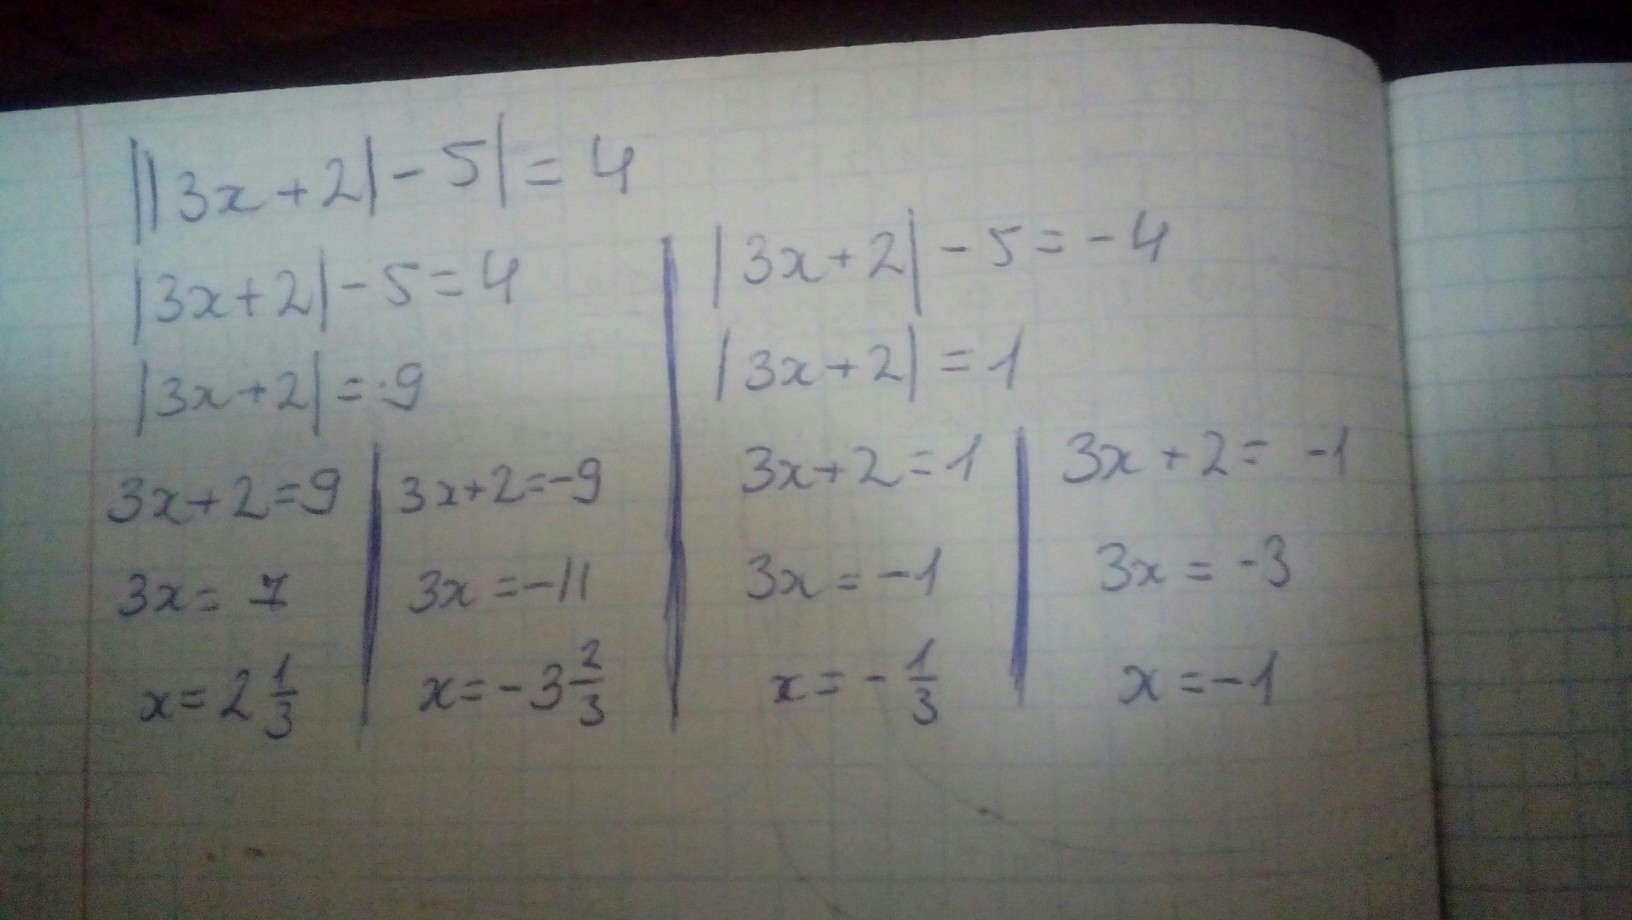 ||3x+2|-5|=4
|3x+2|-5=4
|3x+2|=9
3x+2=9
3x=7
x=2 1/3
3x+2=-9
3x=-11
x=-3 2/3
|3x+2|-5=-4
|3x+2|=1
3x+2=1
3x=-1
x=-1/3
3x+2=-1
3x=-3
x=-1